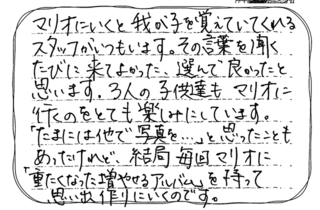 マリオにいくと我が子を覚えていてくれる
スタッフがいつもいます。その言葉を聞く
たびに来てよかった、選んで良かったと
思います。3人の子供達も マリオに
行くのをとても楽しみにしています。
「たまには他で写真を…」と思ったことも
あったけれど、結局毎回マリオに
「重たくなった増やせるアルバム」を持って
思い出作りにいくのです。